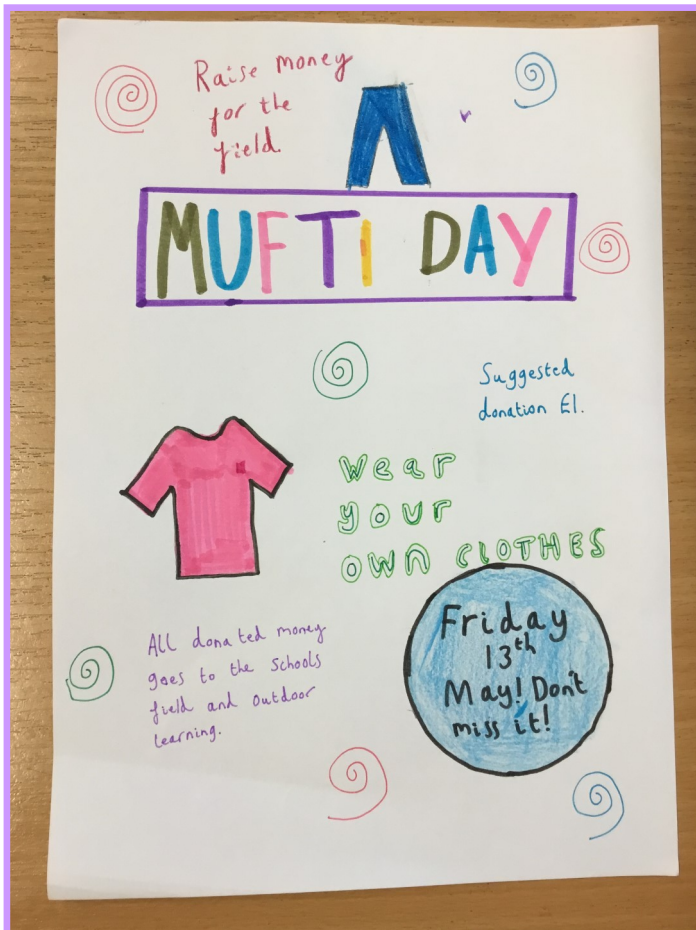 Raise money
for the
field.
MUFTI DAY
Suggested
donation £1.
Wear
your
own CLOTHES
All donated money
goes to the schools
field and outdoor
learning.
Friday
13th
May! Don't
miss it!